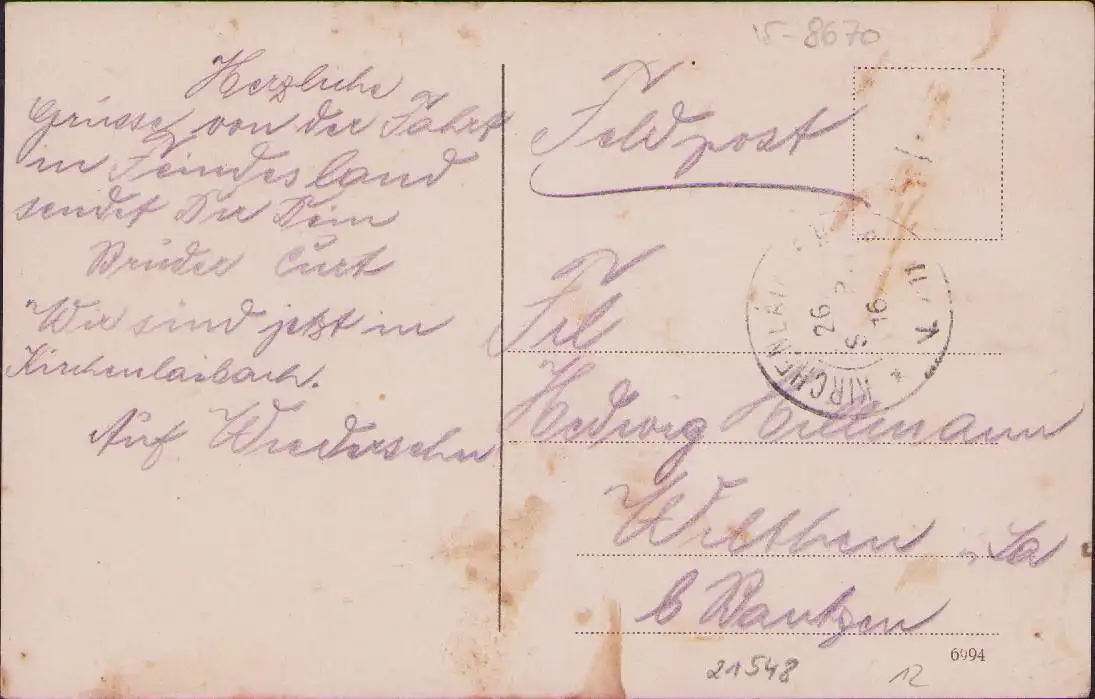 15-8670
Herzliche
Grüsse von der Fahrt
in Feindesland
sendet Dir Dein
Bruder Curt
Wir sind jetzt in
Kirchenlaibach.
Auf Wiedersehn
Feldpost
Frl
Hedwig Hillmann
Wilthen i. Sa
b Bautzen
KIRCHENLAI
26
S 16
6994
21548
12